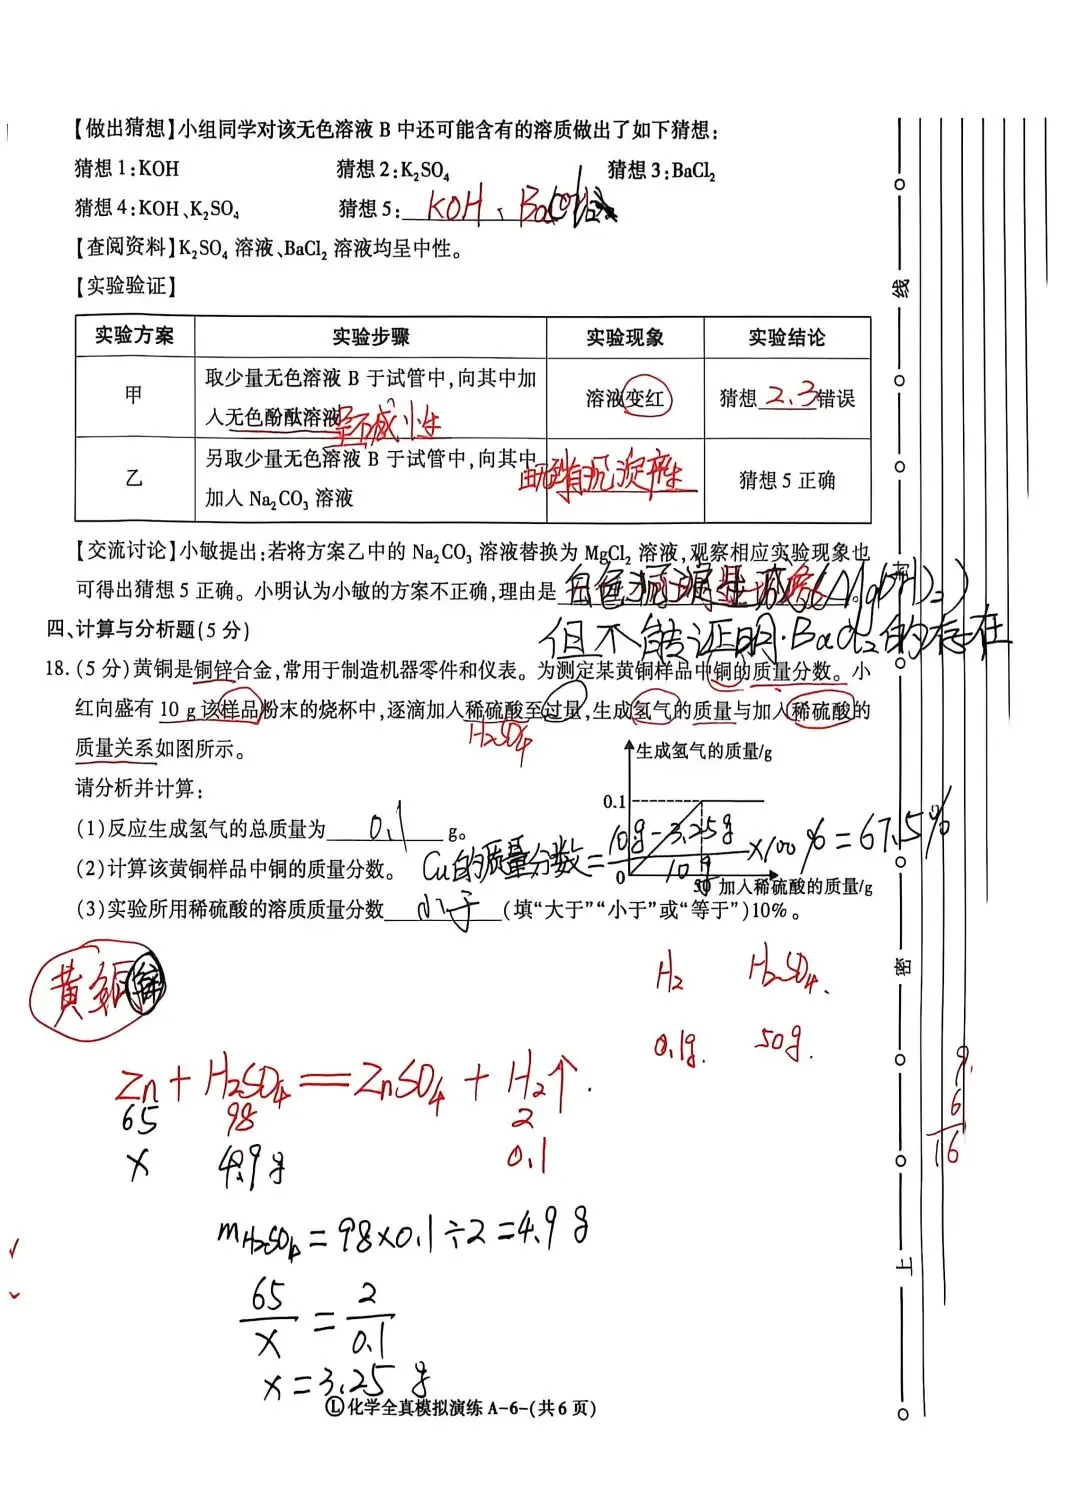 【做出猜想】小组同学对该无色溶液 B 中还可能含有的溶质做出了如下猜想：
猜想 1:KOH 猜想 2:K₂SO₄ 猜想 3:BaCl₂
猜想 4:KOH、K₂SO₄ 猜想 5: KOH、BaCl₂
【查阅资料】K₂SO₄ 溶液、BaCl₂ 溶液均呈中性。
【实验验证】
实验方案 实验步骤 实验现象 实验结论
甲 取少量无色溶液 B 于试管中,向其中加入无色酚酞溶液 溶液变红 猜想 2.3 错误
呈碱性
乙 另取少量无色溶液 B 于试管中,向其中加入 Na₂CO₃ 溶液 有沉淀产生 猜想 5 正确
【交流讨论】小敏提出:若将方案乙中的 Na₂CO₃ 溶液替换为 MgCl₂ 溶液,观察相应实验现象也
可得出猜想 5 正确。小明认为小敏的方案不正确,理由是 白色
但不能证明·BaCl₂的存在
四、计算与分析题(5 分)
18. (5 分)黄铜是铜锌合金,常用于制造机器零件和仪表。为测定某黄铜样品中铜的质量分数。小
红向盛有 10 g 该样品粉末的烧杯中,逐滴加入稀硫酸至过量,生成氢气的质量与加入稀硫酸的
H₂SO₄
质量关系如图所示。
生成氢气的质量/g
请分析并计算:
0.1
(1)反应生成氢气的总质量为 0.1 g。
(2)计算该黄铜样品中铜的质量分数。 Cu的质量分数= (10g-3.25g)/10g ×100%=67.5%
0 50 加入稀硫酸的质量/g
(3)实验所用稀硫酸的溶质质量分数 小于 (填“大于”“小于”或“等于”)10%。
黄铜 锌
H₂ H₂SO₄.
0.1g. 50g.
Zn + H₂SO₄ = ZnSO₄ + H₂↑.
65 98 2
x 4.9g 0.1
m H₂SO₄ = 98×0.1÷2=4.9 g
65/x = 2/0.1
x=3.25 g
Ⓛ化学全真模拟演练 A-6-(共 6 页)
线
密
上
9.
6
16